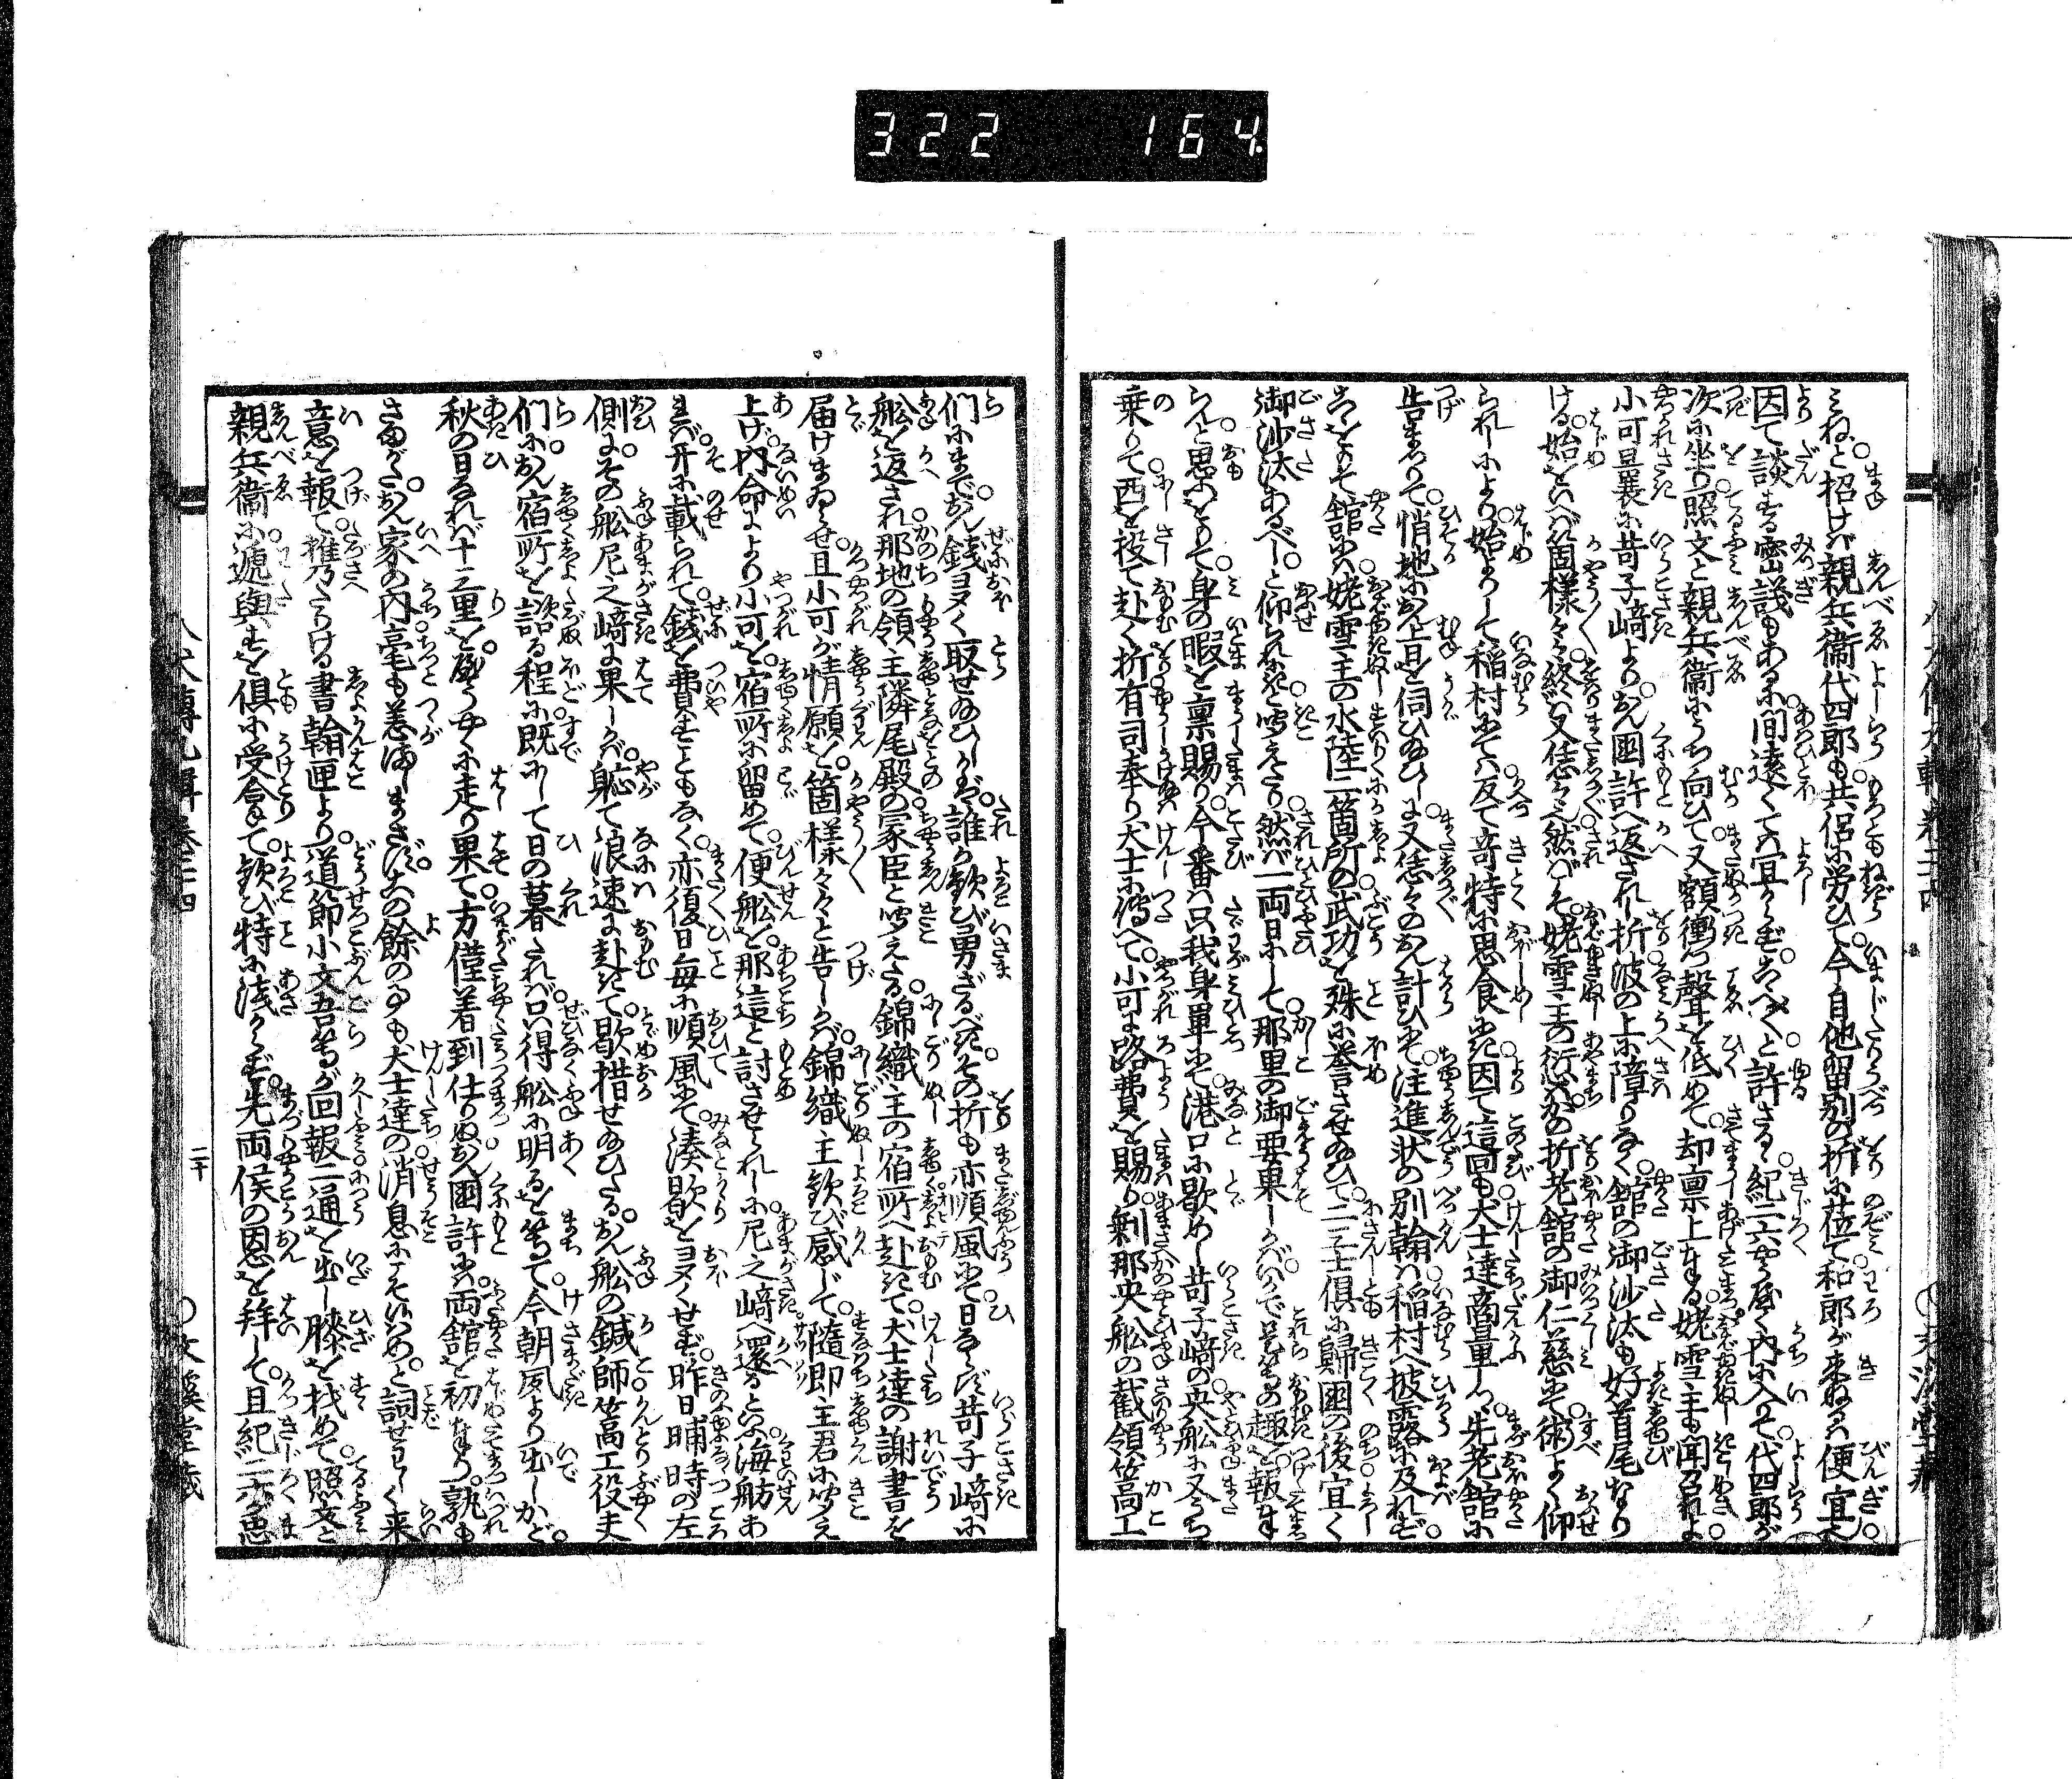 322 164
まねと招けば親兵衞代四郎も共侶に労ひて今自他留別の折に莅て和郎が来ぬるは便宜大
因て談ずる密議もあるに間遠くては宜からずこへ々々と許さるゝ紀二六やうやく内に入りて代四郎が
次に坐り照文と親兵衞にうち向ひて又額衝つ聲を低めて却禀上する姥雪主も聞召れよ
小可曩に苛子﨑よりおん國許へ返されし折波の上に障りなく館の御沙汰も好首尾なり
ける始をいへば箇様々々終は又恁々と然ばそ姥雪主の衍の折老館の御仁慈にて術よく仰
られしにより始よりして稲村にては反て竒特に思食にき因て這回も犬士達商量しつ先老館に
告まつりて悄地にお上旦を伺ひ給ひしに又恁々のおん計ひにて注進状の別翰は稲村へ披露に及れず
こをもて館には姥雪主の水陸二箇所の武功を殊に誉させ給ひて二三士倶に歸國の後宜く
御沙汰あるべしと仰られにきと聞えたり然ば一両日にして那里の御要果しかばいかで是等の趣を報ま
らんと思ふをもて身の暇を禀賜り今番は只我身單にて港口に歇めし苛子﨑の央舩に又うち
乗りて西を投て赴く折有司奉り犬士に傳へて小可に路費を賜り剰那央舩の截領篙工
们にまでおん錢ヨヌく取せ給ひしかば誰か歓び勇ざるべきその折も亦順風にて日ならず苛子﨑に
舩を返され那地の領主隣尾殿の家臣と聞えたる錦織主の宿所へ赴きて犬士達の謝書を
届けまゐらせ且小可が情願を箇様々々と告しかば錦織主歓び感じて隨即主君に聞え
上げ内命により小可を宿所に留めて便舩を那這と討させられしに尼之﨑へ還るといふ海舫あ
れば开に載られて錢を費すこともなく亦復日毎に順風にて湊歇りをヨヌくせず昨日晡時の左
側にその舩尼之﨑に果しかば軈て浪速に赴きて歇措せ給ひたるおん舩の鍼師篙工役夫
们におん宿所を諮る程に既にして日の暮たれば只得舩に明るを等て今朝夙より出しかど
秋の日なれば十二里をやうやくに走り果て方僅着到仕りぬおん國許には両館を初まつり孰も
さまおん家の内毫も恙ましまさずこの餘の事も犬士達の消息にこそ候はめと詞せわしく来
意を報て携たりける書翰匣より道節小文吾等が回報二通を出し膝を找めて照文と
親兵衞に逓與すを倶に受拿て歓び特に淺からず先両侯の恩を拜して且紀二六の忠
八犬傳九輯 巻二十四
二十
文溪堂藏